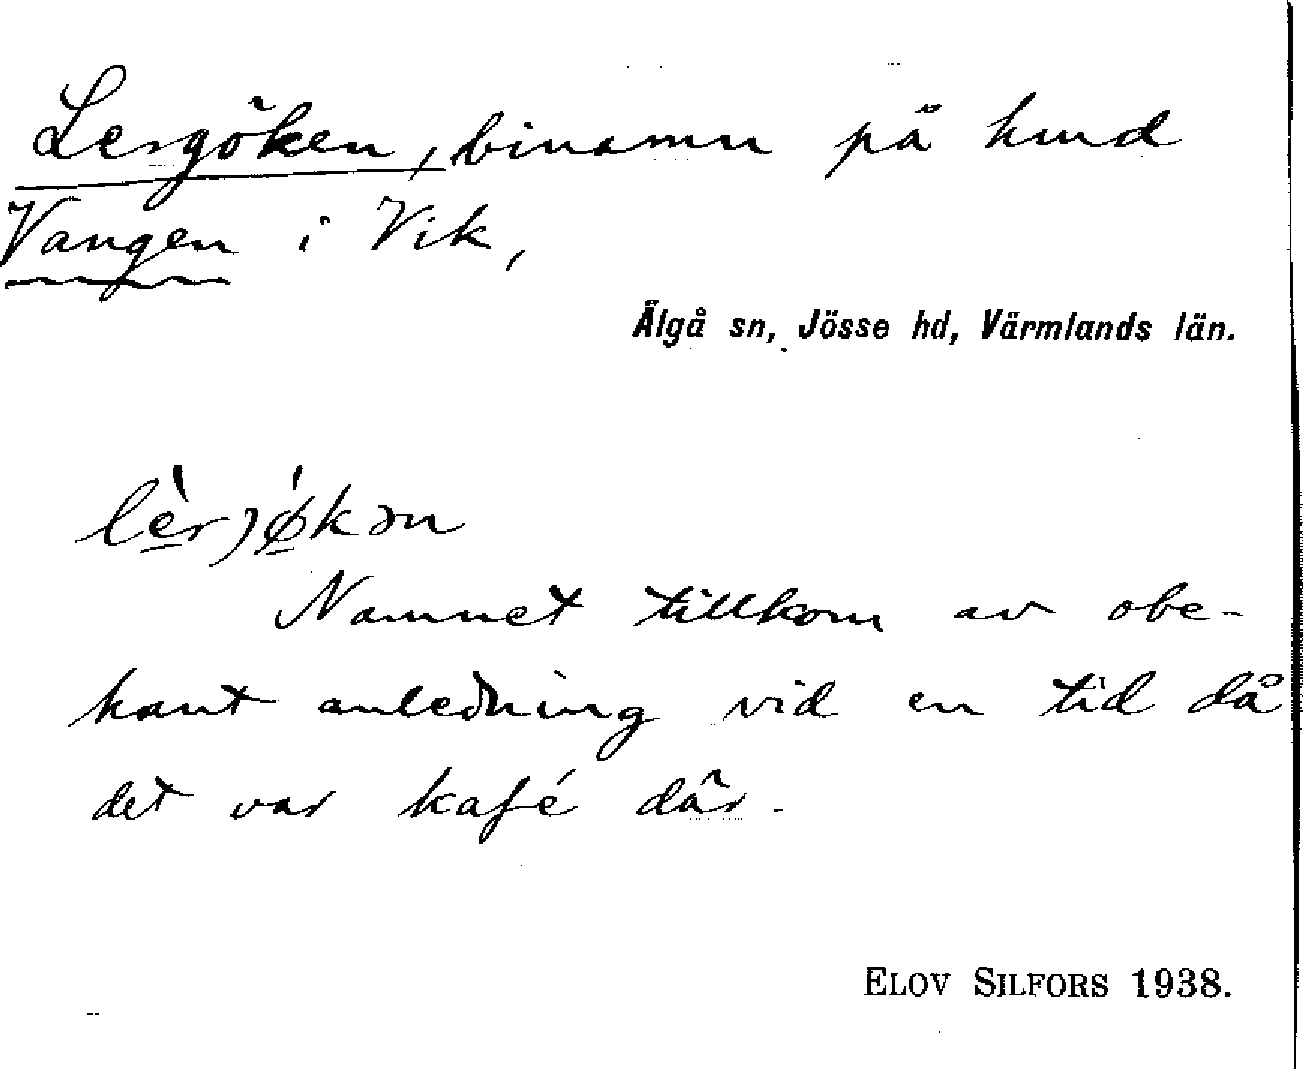 Lergöken, binamn på hmd
Vangen i Vik,
Älgå sn, Jösse hd, Värmlands län.
lè̱rjǿ̱kən
Namnet tillkom av obe-
kant anledning vid en tid då
det var kafé där.
ELOV SILFORS 1938.